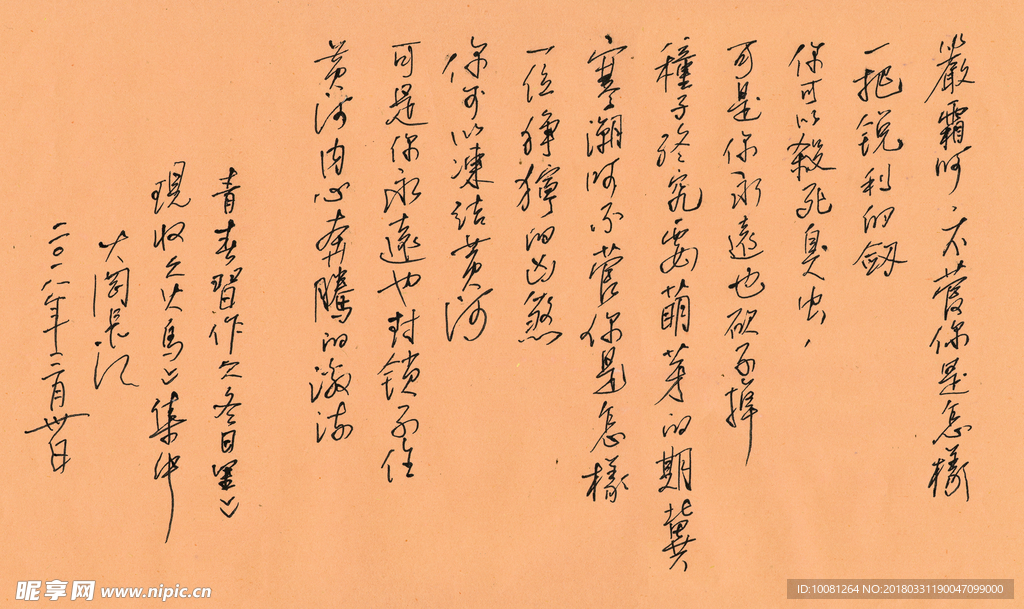 嚴霜呵,不管你是怎樣
一把銳利的劔
你可以殺死臭虫,
可是你永遠也砍不掉
種子終究要萌芽的期冀
寒潮呵不管你是怎樣
一位猙獰的凶煞
你可以凍結黄河
可是你永遠也封鎖不住
黄河内心奔騰的激流
青春習作《冬日里》
現收《火鳥》集中
大閏長江
二〇一八年三月卅日
昵享网 www.nipic.cn
ID:10081264 NO:20180331190047099000